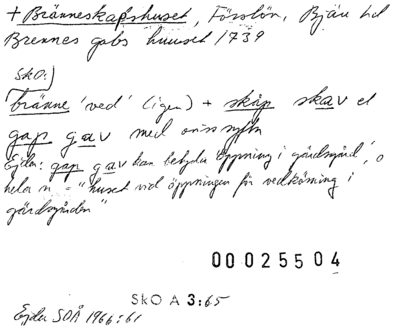 + Bränneskapshuset, Förslöv, Bjäre hd
Brennes gabs huuset 1739
SkO.
bränne 'ved' (igen) + skåp skav el
gap gav med
Ejder: gap gav kan betyda öppning i gärdsgård, o
hela n = "huset vid öppningen för vedkörning i
gärdsgården"
00025504
SkO A 3:65
Ejder SOÅ 1966:61